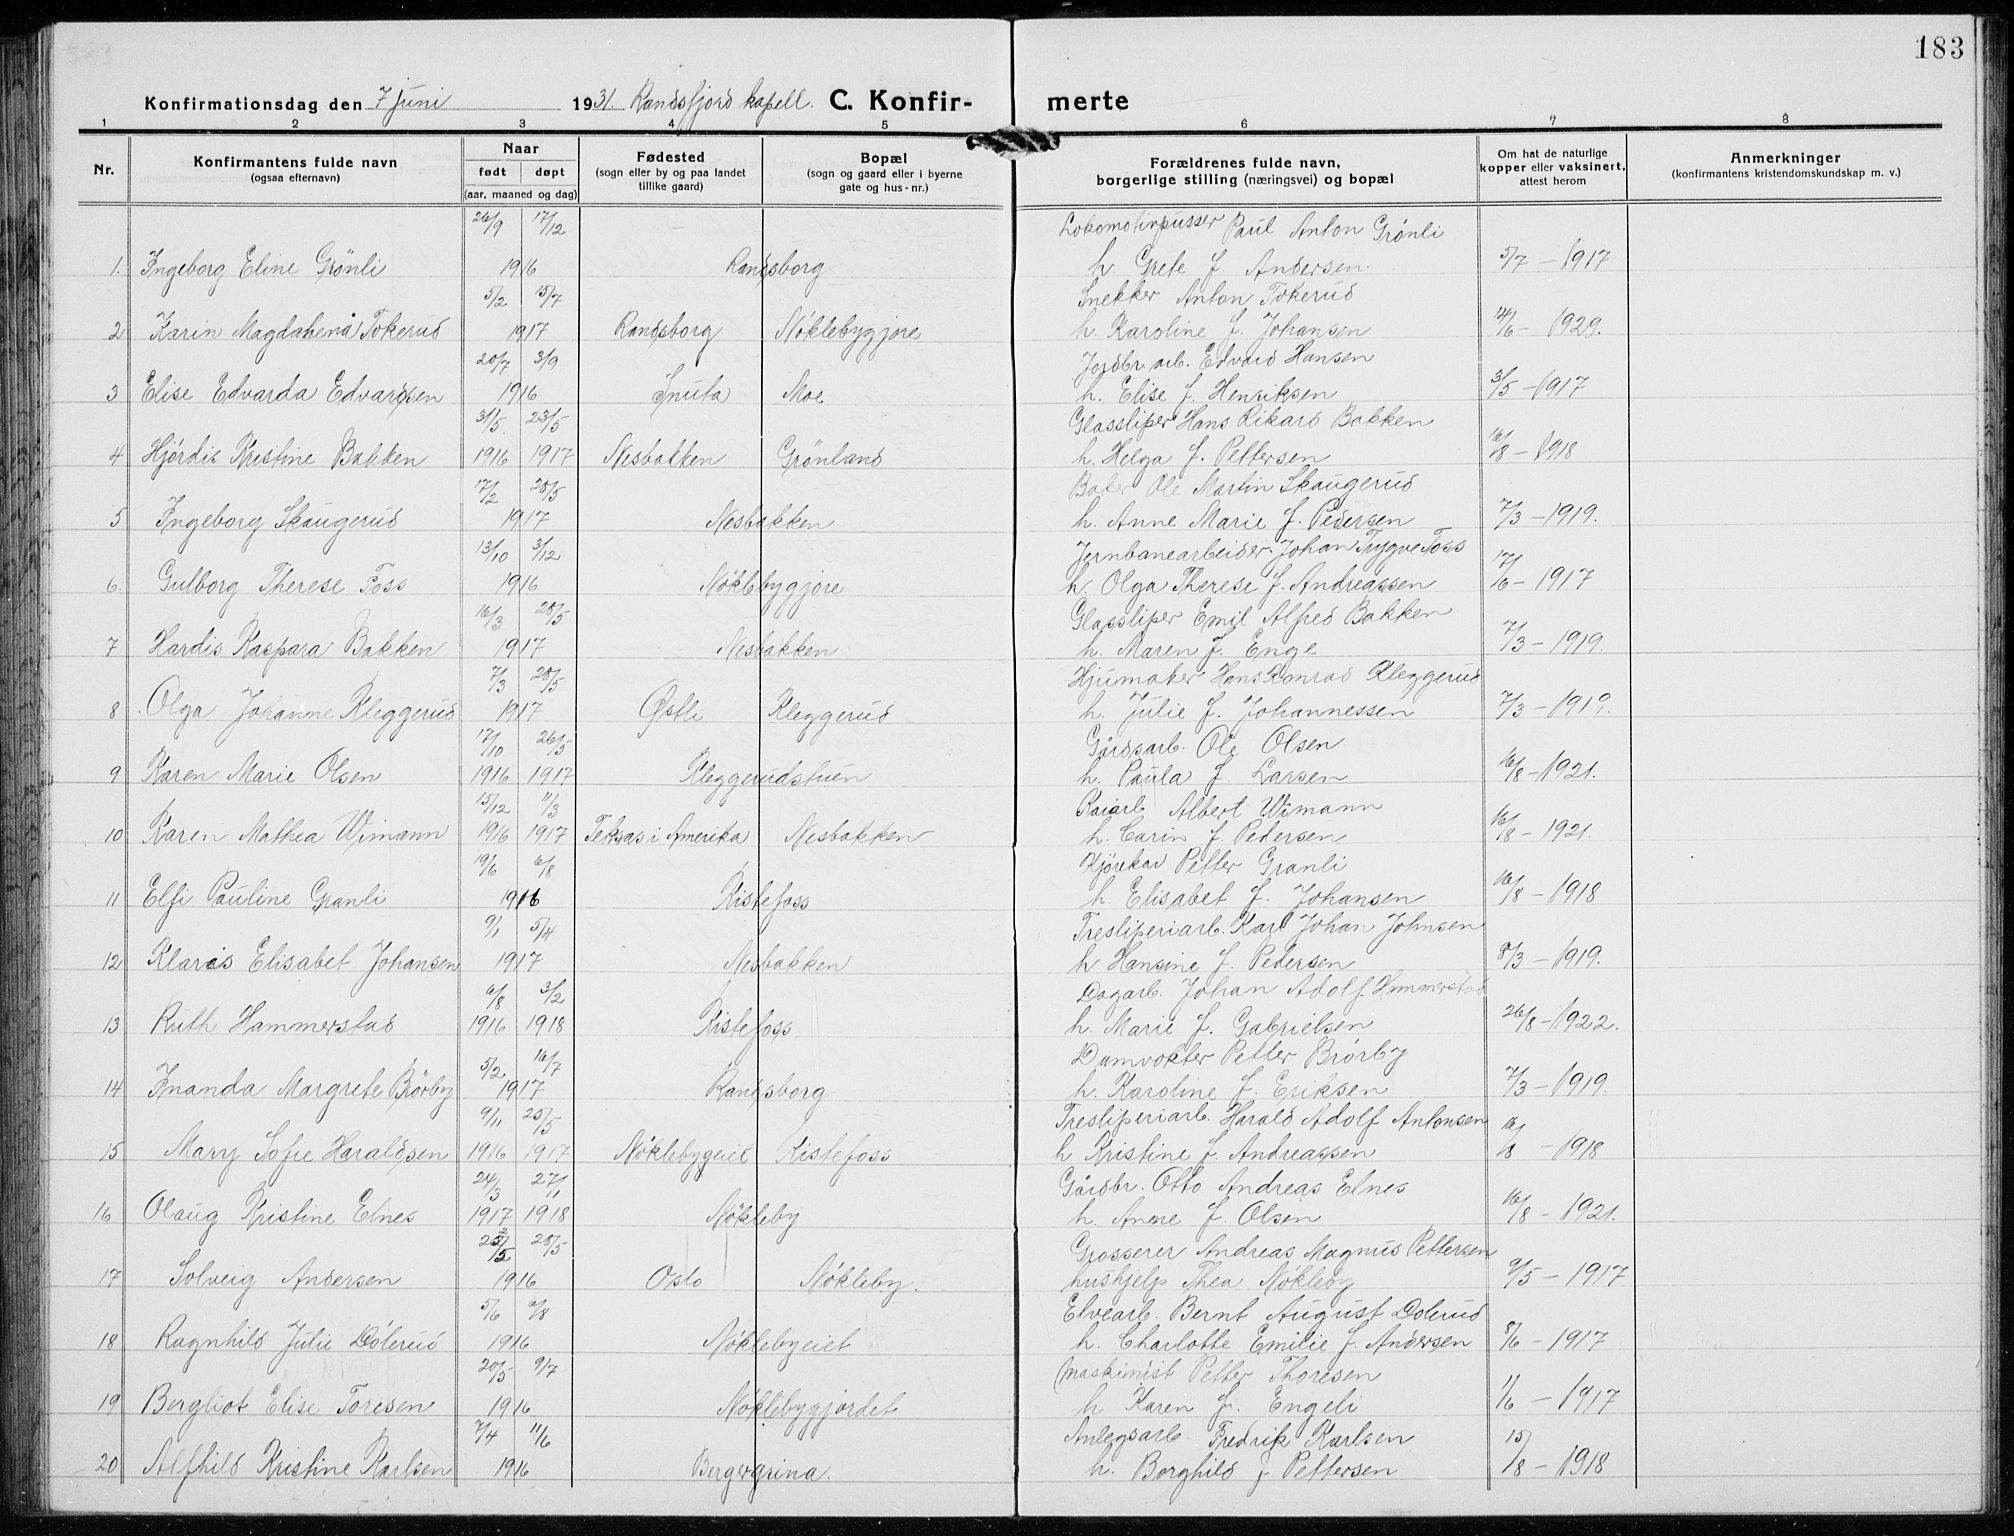 183
Konfirmationsdag den 7 juni 1931. Randsfjord kapell. C. Konfir- merte
1 2 3 4 5 6 7 8
Nr. Konfirmantens fulde navn (ogsaa efternavn) Naar født døpt (aar, maaned og dag) Fødested (sogn eller by og paa landet tillike gaard) Bopæl (sogn og gaard eller i byerne gate og hus-nr.) Forældrenes fulde navn, borgerlige stilling (næringsvei) og bopæl Om hat de naturlige kopper eller vaksinert, attest herom Anmerkninger (konfirmantens kristendomskundskap m. v.)
26/9 17/12 Lokomotivpusser Paul Anton Grønli
1. Ingeborg Eline Grönli 1916 Randsborg h. Grete f. Andersen. 5/7 - 1917
5/2 15/7 Snekker Anton Tokerud
2 Karin Magdalena Tokerud 1917 Randsborg Nøklebygjore h. Karoline f. Johansen 14/6 - 1929.
20/7 3/9 Jordbr. arb. Edvard Hansen
3 Elise Edvarda Edvardsen 1916 Snuta Moe h. Elise f. Henriksen 3/5 - 1917
31/5. 23/5 Glassliper Hans Rikard Bakken
4 Hjördis Kristine Bakken 1916 1917 Nesbakken Grønland h. Helga f. Pettersen 16/8 - 1918
17/2 28/5 Baker Ole Martin Skaugerud
5 Ingeborg Skaugerud 1917 Nesbakken h. Anne Marie f. Pedersen 7/3 - 1919.
13/10 3/12 Jernbanearbeider Johan Trygve Foss
6. Gulborg Therese Foss 1916 Nøklebygjore h. Olga Therese f. Andreassen 17/6 - 1917
16/3 28/5 Glassliper Emil Alfred Bakken
7 Hardis Kaspara Bakken 1917 Nesbakken h. Maren f. Enge 7/3 - 1919.
7/3 28/5 Hjulmaker Hans Konrad Kleggerud
8 Olga Johanne Kleggerud 1917 Østli Kleggerud h. Julie f. Johannessen 7/3 - 1919.
17/10 26/5 Gårdsarb. Ole Olsen
9 Karen Marie Olsen 1916 1917 Kleggerudstuen h. Paula f. Larsen 16/8 - 1921.
15/12 11/3 Albert Wimann
10 Karen Mathea Wimann 1916 1917 Teksas i Amerika Nesbakken h. Carin f. Pedersen 16/8 - 1921.
19/6 6/8 Kjörekar Petter Granli
11 Elfi Pauline Granli 1916 Kistefoss h. Elisabet f. Johansen 16/8 - 1918
9/1 5/4 Tresliperiarb. Karl Johan Johnsen
12 Klaras Elisabet Johansen 1917 Nesbakken h. Hansine f. Pedersen 8/3 - 1919.
6/8 3/2 Dagarb. Johan Adolf Hammerstad
13 Ruth Hammerstad 1916 1918 Kistefoss h. Marie f. Gabrielsen 26/8 - 1922.
5/2 16/7 Damvokter Petter Brørby
14 Inanda Margrete Börby 1917 Randsborg h. Karoline f. Eriksen 7/3 - 1919.
9/11 25/5 Tresliperiarb. Harald Adolf Antonsen
15 Mary Sofie Haraldsen 1916 1917 Nøklebygeiet Kistefoss h Kristine f. Andreassen 16/8 - 1918
24/3 27/1 Gårdbr. Otto Andreas Elnes
16 Olaug Kristine Elnes 1917 1918 Nökleby h. Anne f. Olsen 16/8 - 1921.
28/5 Grosserer Andreas Magnus Pettersen
17 Solveig Andersen 1916 Oslo Nøkleby. hushjelp Thea Nøkleby 9/5 - 1917
5/6 6/8 Elvearb. Bernt August Dølerud
18 Ragnhild Julie Dølerud 1916 Nøklebygeiet h. Charlotte Emilie f. Andersen 8/6 - 1917
20/5 9/7 Maskinist Petter Thoresen
19 Bergliot Elise Toresen 1916 Nøklebygjordet h Karen f. Engeli 11/6 - 1917
7/4 11/6 Anlegsarb. Fredrik Karlsen
20 Alfhild Kristine Karlsen 1916 Bergergrina. h. Borghild f Pettersen 15/8 - 1918